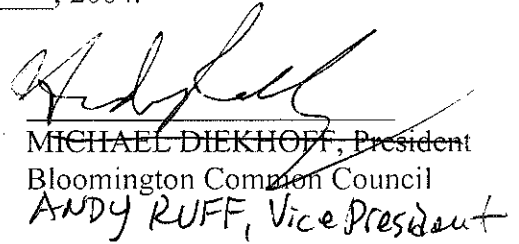 , 2004.
Andy Ruff
MICHAEL DIEKHOFF, President
Bloomington Common Council
ANDY RUFF, Vice President